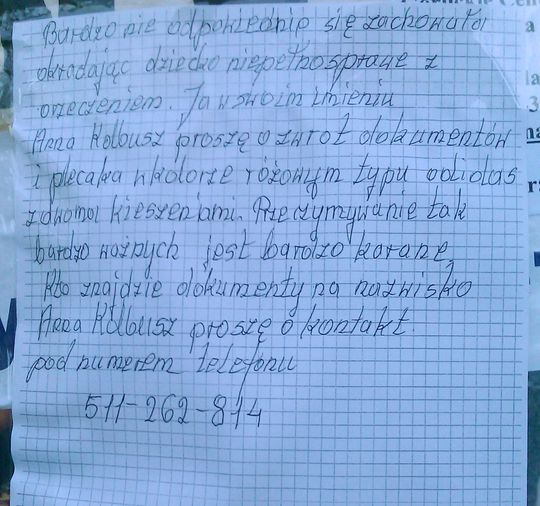 Bardzo nie odpowiednip się zachowała
okradając dziecko niepełnosprawe z
orzeczeniem. Ja w swoim imieniu
Anna Kolbusz proszę o zwrot dokumentów
i plecaka w kolorze różowym typu adidas
z dwoma kieszeniami. Przeczymywanie tak
bardzo ważnych jest bardzo karane,
Kto znajdzie dokumenty na nazwisko
Anna Kolbusz proszę o kontakt.
pod numerem telefonu
511-262-814